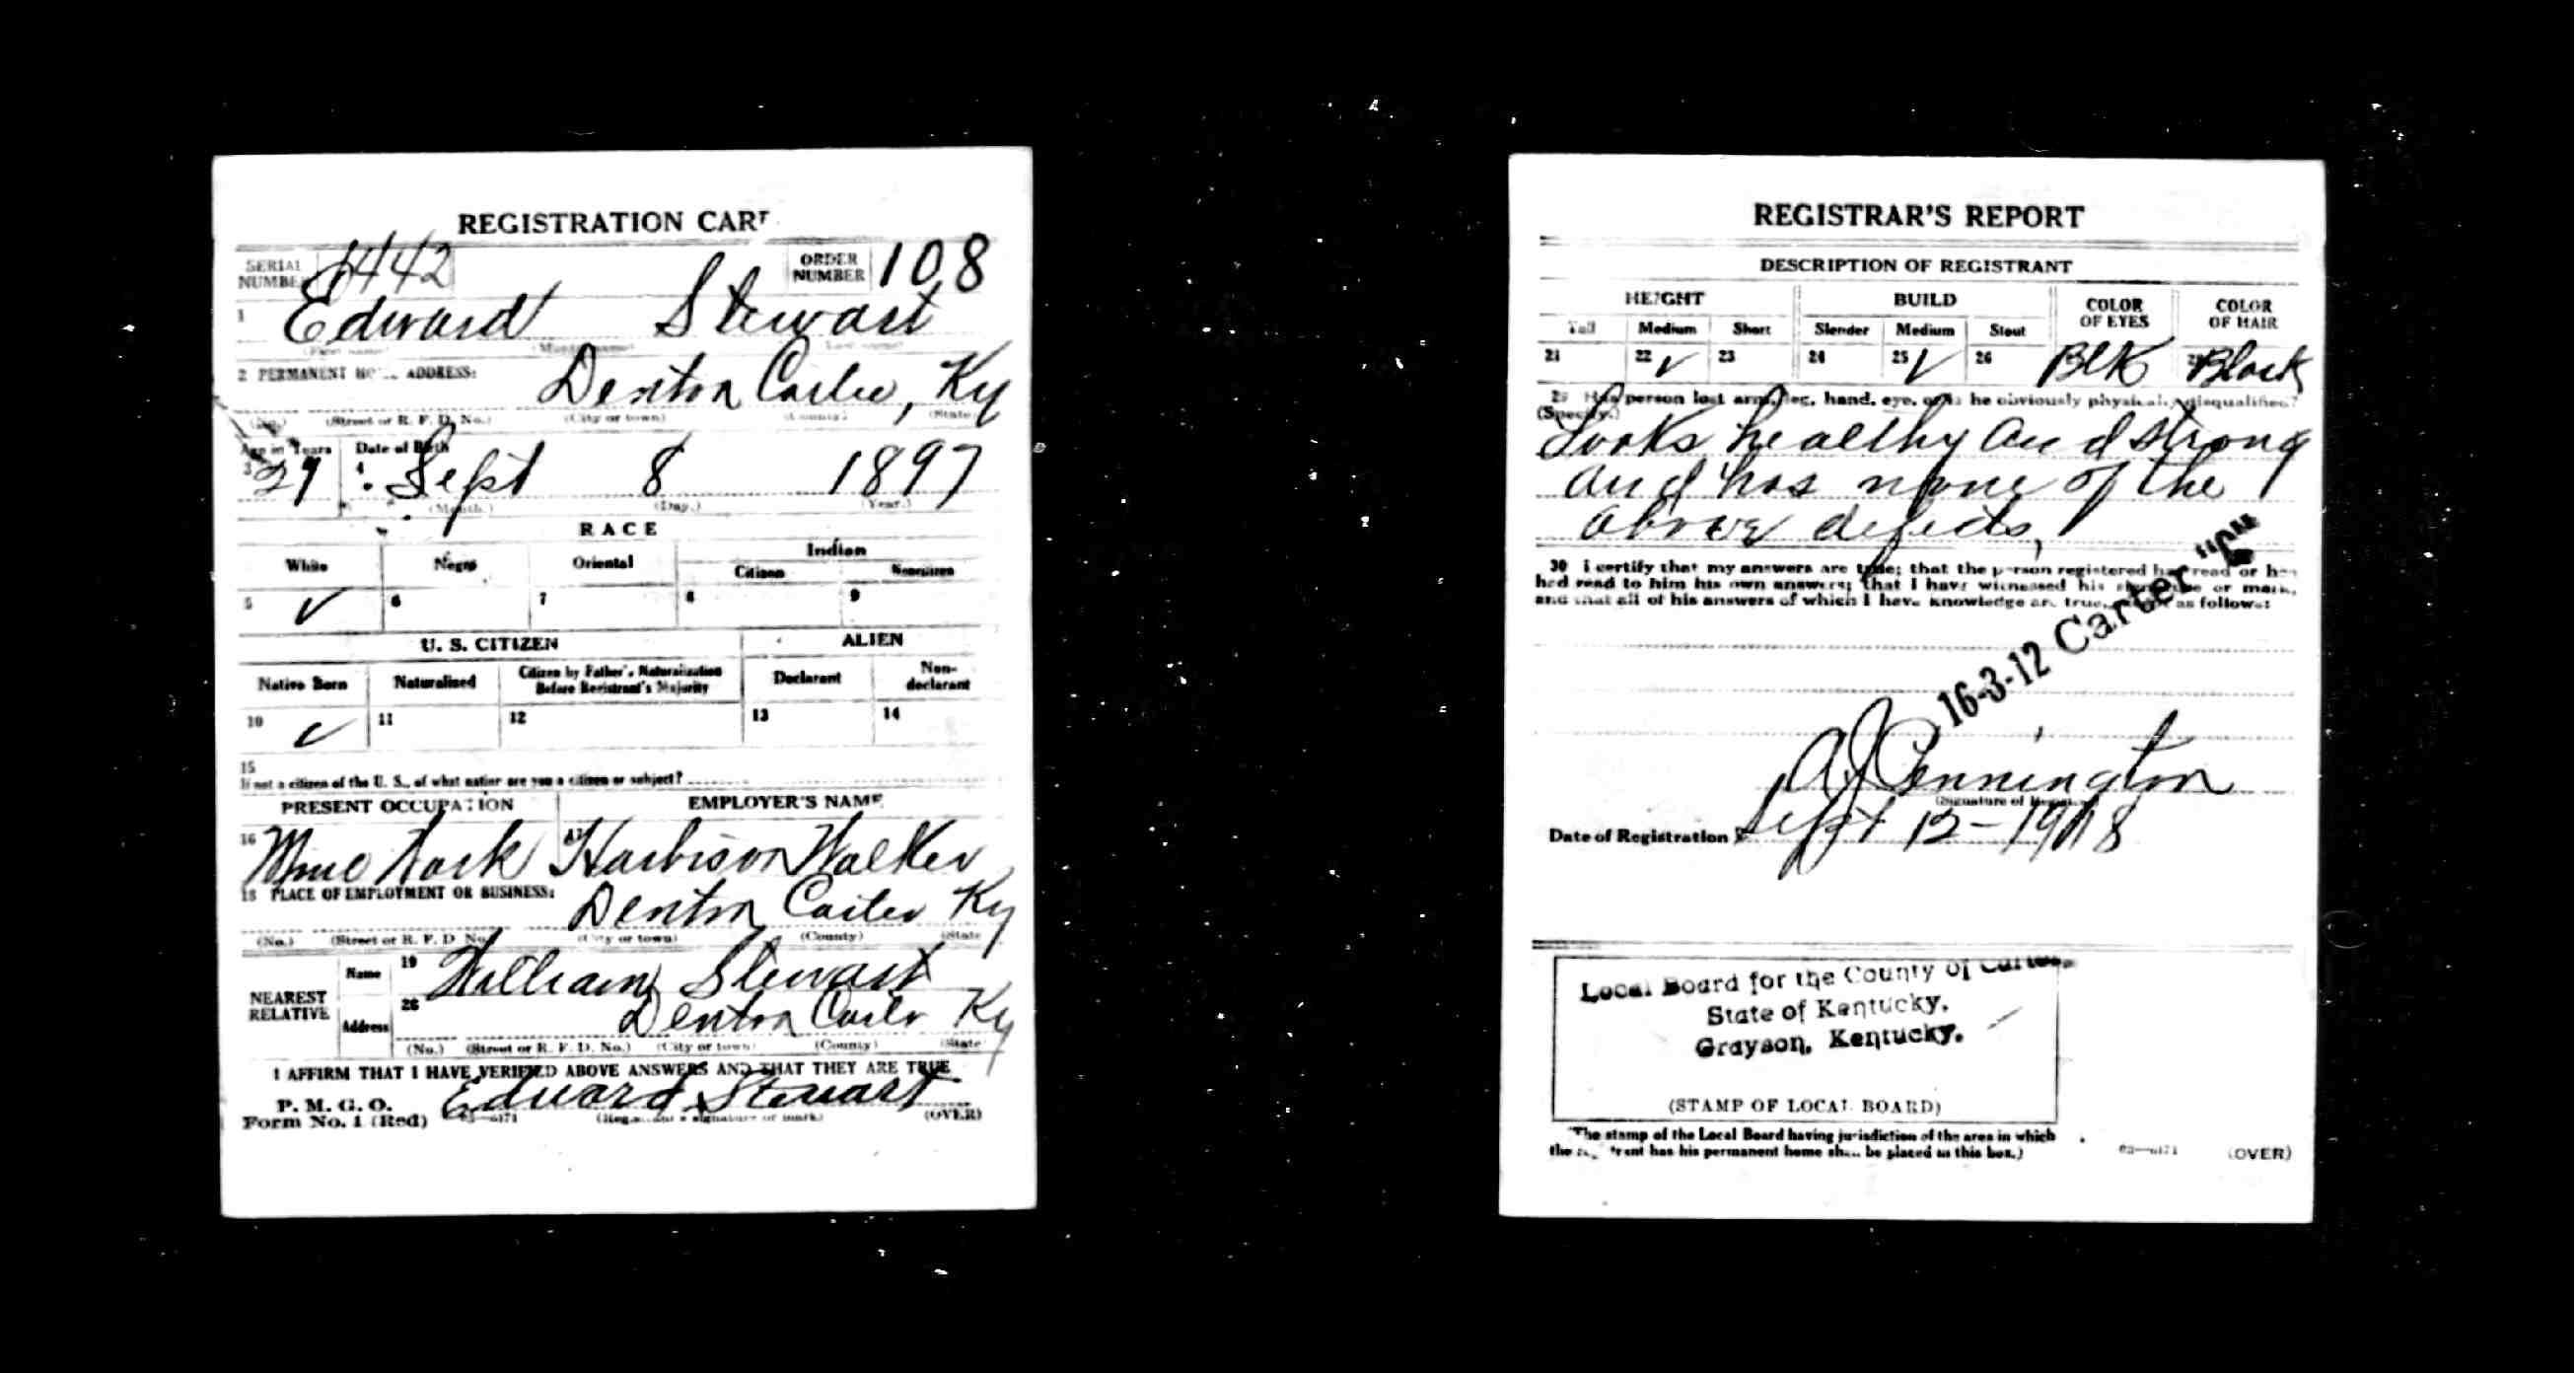 REGISTRATION CAR
SERIAL NUMBER 1442 ORDER NUMBER 108
1 Edward Stewart
(First name) (Middle name) (Last name)
2 PERMANENT HOME ADDRESS:
Denton Carter, Ky
(No.) (Street or R. F. D. No.) (City or town) (County) (State)
Age in Years Date of Birth
3 4 Sept 8 1897
(Month.) (Day.) (Year.)
RACE
White Negro Oriental Indian
Citizen Noncitizen
5 ✓ 6 7 8 9
U. S. CITIZEN ALIEN
Native Born Naturalized Citizen by Father's Naturalization Before Registrant's Majority Declarant Non-declarant
10 ✓ 11 12 13 14
15
If not a citizen of the U. S., of what nation are you a citizen or subject?
PRESENT OCCUPATION EMPLOYER'S NAME
16 17 Harbison Walker
18 PLACE OF EMPLOYMENT OR BUSINESS:
Denton Carter Ky
(No.) (Street or R. F. D. No.) (City or town) (County) (State)
NEAREST RELATIVE
Name 19 William Stewart
Address 20 Denton Carter Ky
(No.) (Street or R. F. D. No.) (City or town) (County) (State)
I AFFIRM THAT I HAVE VERIFIED ABOVE ANSWERS AND THAT THEY ARE TRUE
P. M. G. O.
Form No. 1 (Red) Edward Stewart
03—6171 (Registrant's signature or mark) (OVER)
REGISTRAR'S REPORT
DESCRIPTION OF REGISTRANT
HEIGHT BUILD COLOR OF EYES COLOR OF HAIR
Tall Medium Short Slender Medium Stout
21 22 ✓ 23 24 25 ✓ 26 Blk Black
29 Has person lost arm, leg, hand, eye, or is he obviously physically disqualified?
(Specify.)
Looks healthy and strong
and has none of the
above defects,
30 I certify that my answers are true; that the person registered has read or has
had read to him his own answers; that I have witnessed his signature or mark,
and that all of his answers of which I have knowledge are true, as follows:
16-3-12 Carter "C"
A J Pennington
(Signature of Registrar)
Date of Registration Sept 12-1918
Local Board for the County of Carter
State of Kentucky.
Grayson, Kentucky.
(STAMP OF LOCAL BOARD)
(The stamp of the Local Board having jurisdiction of the area in which
the registrant has his permanent home shall be placed in this box.)
03—6171 (OVER)